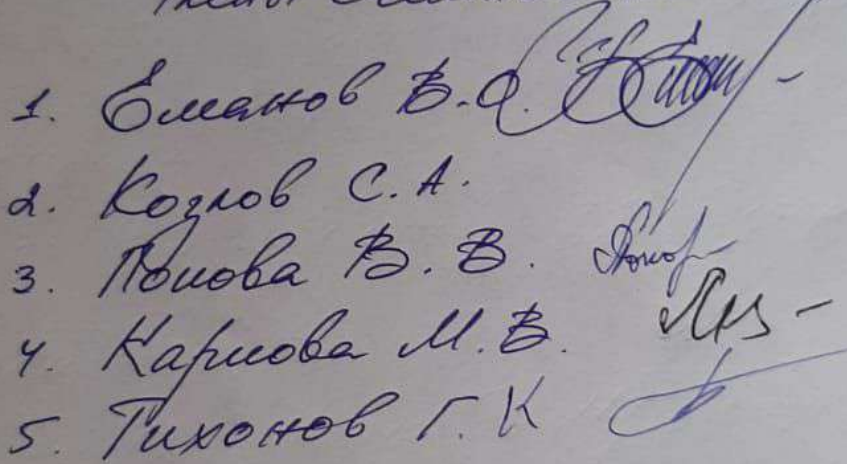 1. Еманов В.О.
2. Козлов С.А.
3. Попова В.В.
4. Карпова М.В.
5. Тихонов Г.К